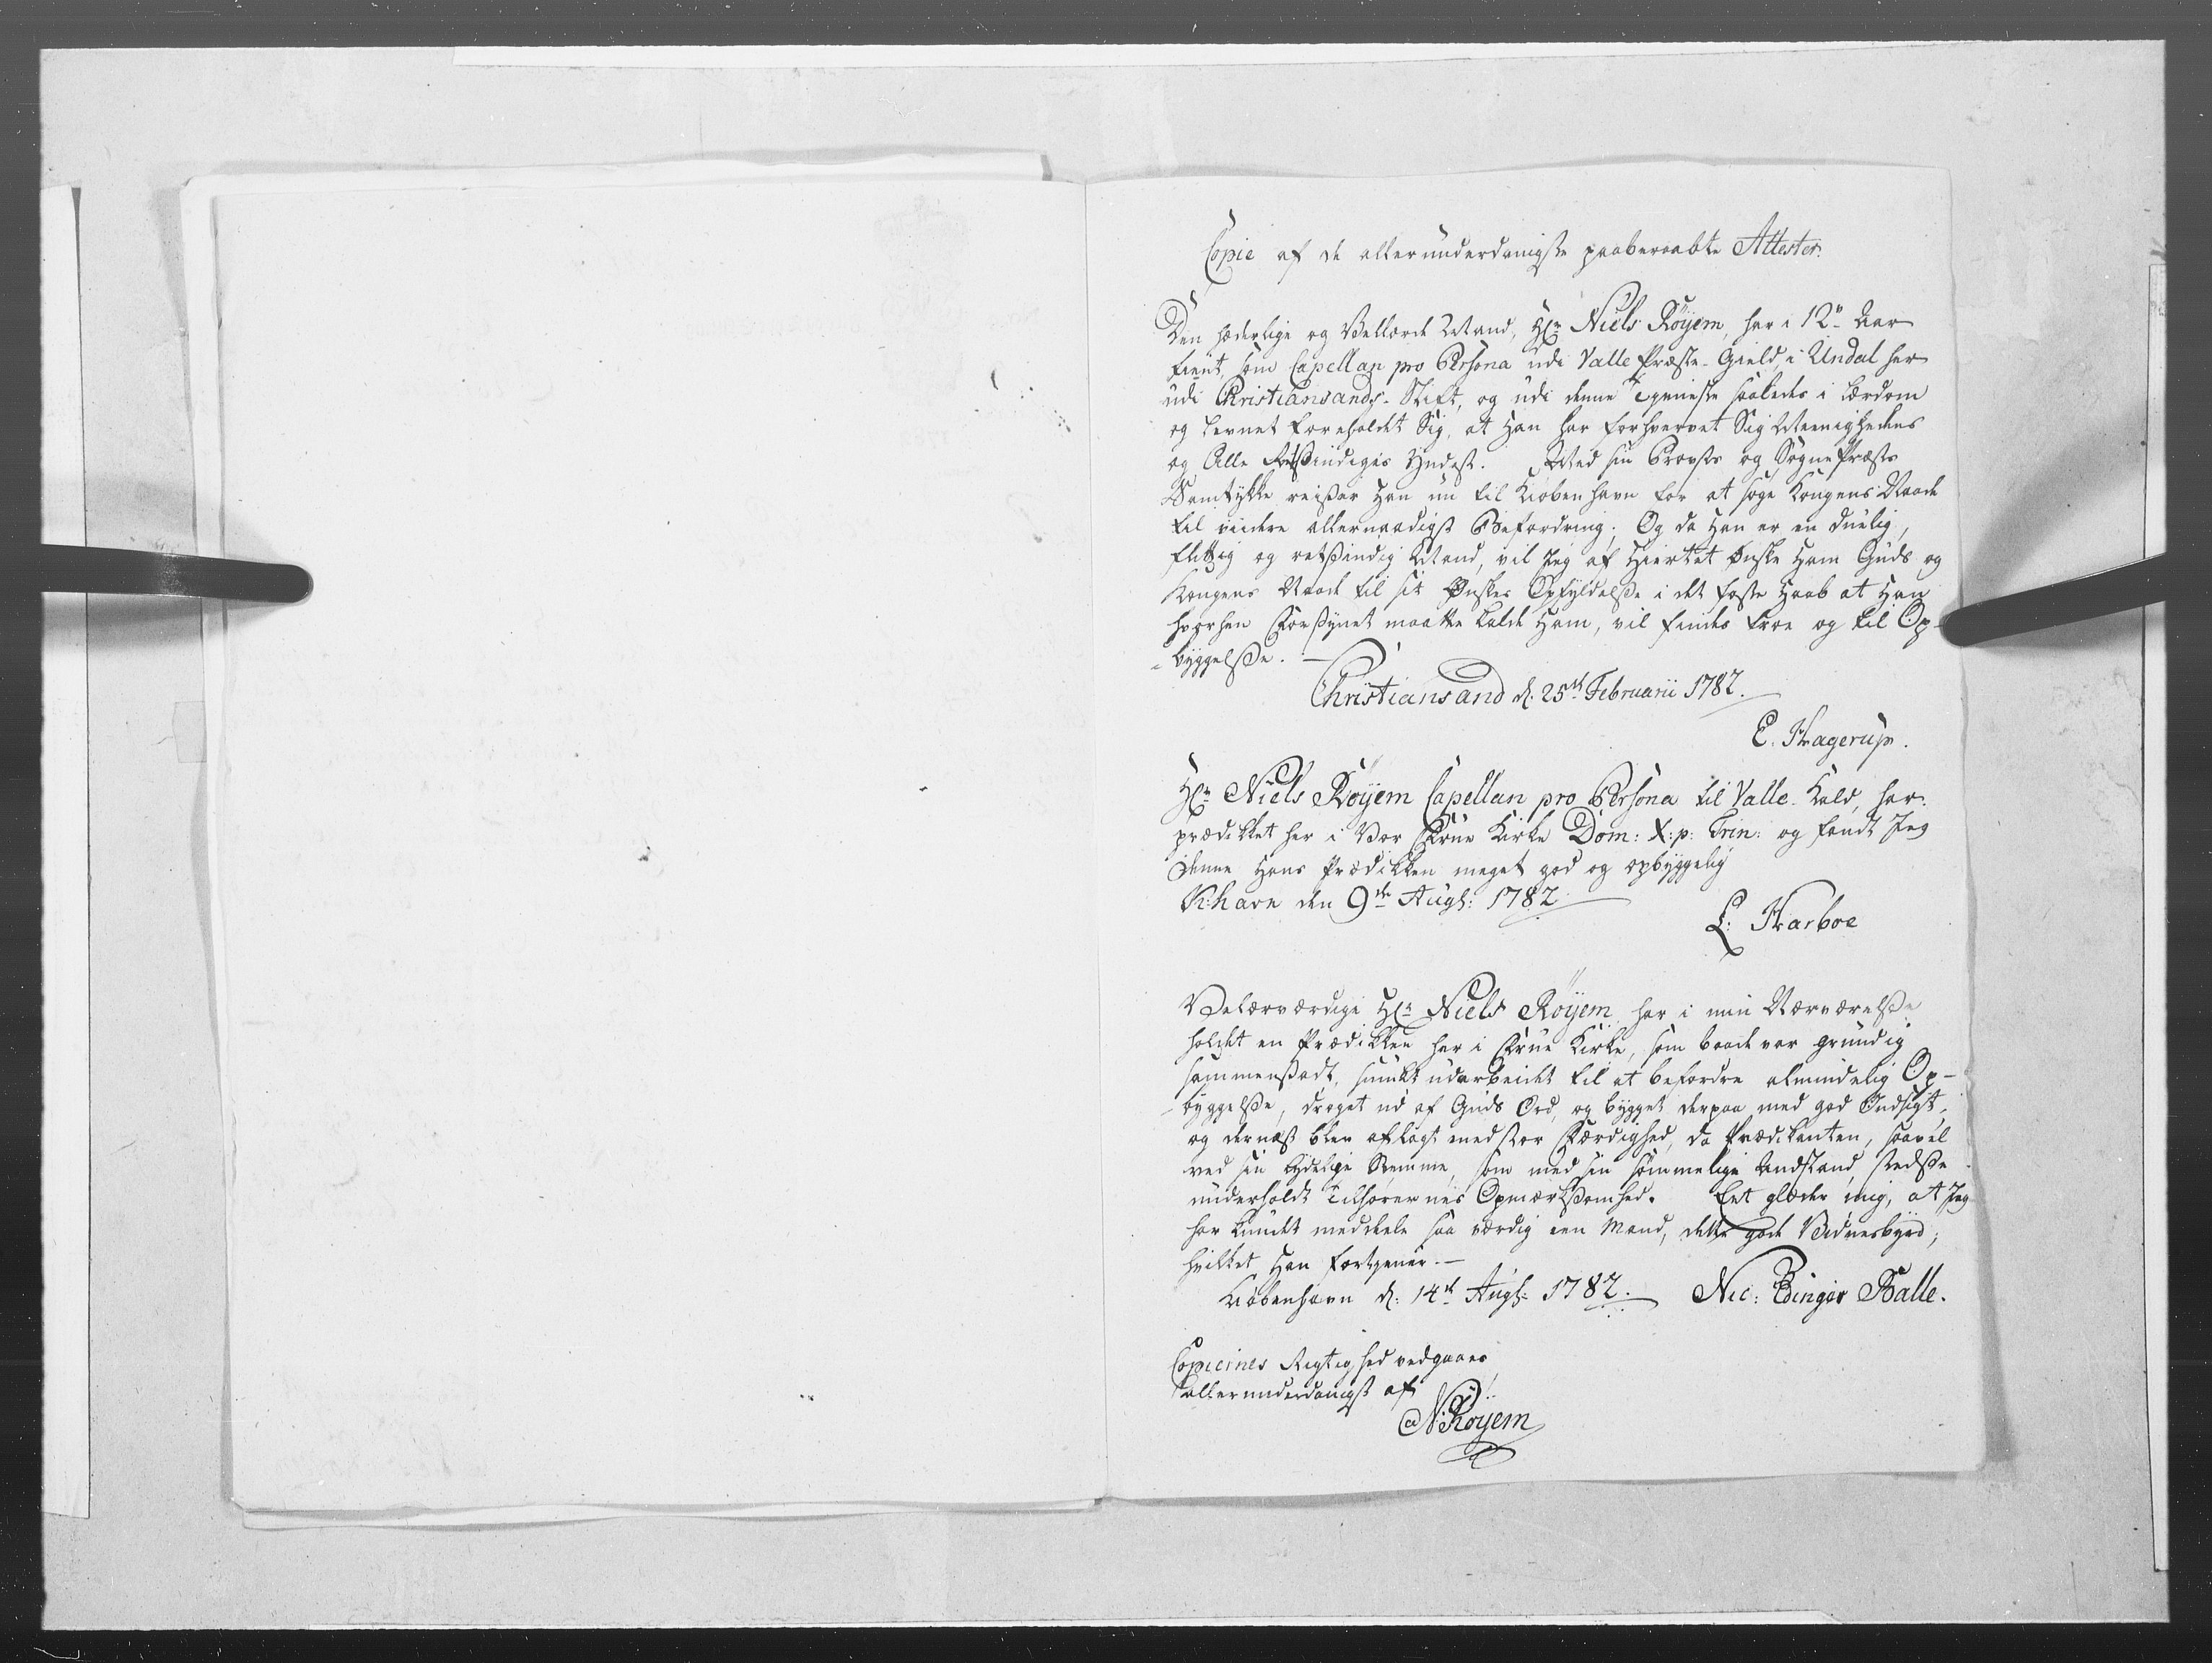 Copie af de allerunderdanigste paaberaabte Attester.
Den hæderlige og Vellærde Mand, Hr. Niels Röyem, har i 12 Aar
tient, som Capellan pro Persona udi Valle Præste-Gield, i Undal her
udi Christiansands-Stift, og udi denne Tjeneste saaledes i Lærdom
og Levnet foreholdet Sig, at Han har forhvervet Sig Meenighedens
og Alle Retsindiges Yndest. Med sin Provsts og SognePræsts
Samtykke reiser Han nu til Kiøbenhavn for at søge Kongens Naade
til viidere allernaadigst Befordring. Og da Han er en duelig,
flittig og retsindig Mand, vil Jeg af Hiertet ønske Ham Guds og
Kongens Naade til sit Ønskes Opfyldelse i det faste Haab at Han
hvorhen Forsynet maatte kalde Ham, vil findes troe og til Op-
byggelse.
Christiansand d. 25de Februarii 1782.
E. Hagerup.
Hr. Niels Röyem Capellan pro Persona til Valle-Kald, har
prædikket her i Vor Frue Kirke Dom: X: p: Trin: og fandt Jeg
denne Hans Prædikken meget god og opbyggelig
K:havn den 9de Augs: 1782
L: Harboe
Velærværdige Hr. Niels Röyem har i min Nærværelse
holdet en Prædikken her i Frue Kirke, som baade var grundig
sammensadt, smukt udarbeidet til at befordre almindelig Op-
byggelse, draget ud af Guds Ord, og bygget derpaa med god Indsigt,
og dernæst blev aflagt med stor Færdighed, da Prædikanten, saavel
ved sin tydelige Stemme, som med sin sømmelige Anstand, stedse
underholdt Tilhørernes Opmærksomhed. Det glæder mig, at Jeg
har kundet meddeele saa værdig een Mand, dette gode Vidnesbyrd,
hvilket Han fortjener.
Kiöbenhavn d: 14de Augs: 1782. Nic: Edinger Balle.
Copieines Rigtighed vedgaaes
allerunderdanigst af
N Röyem